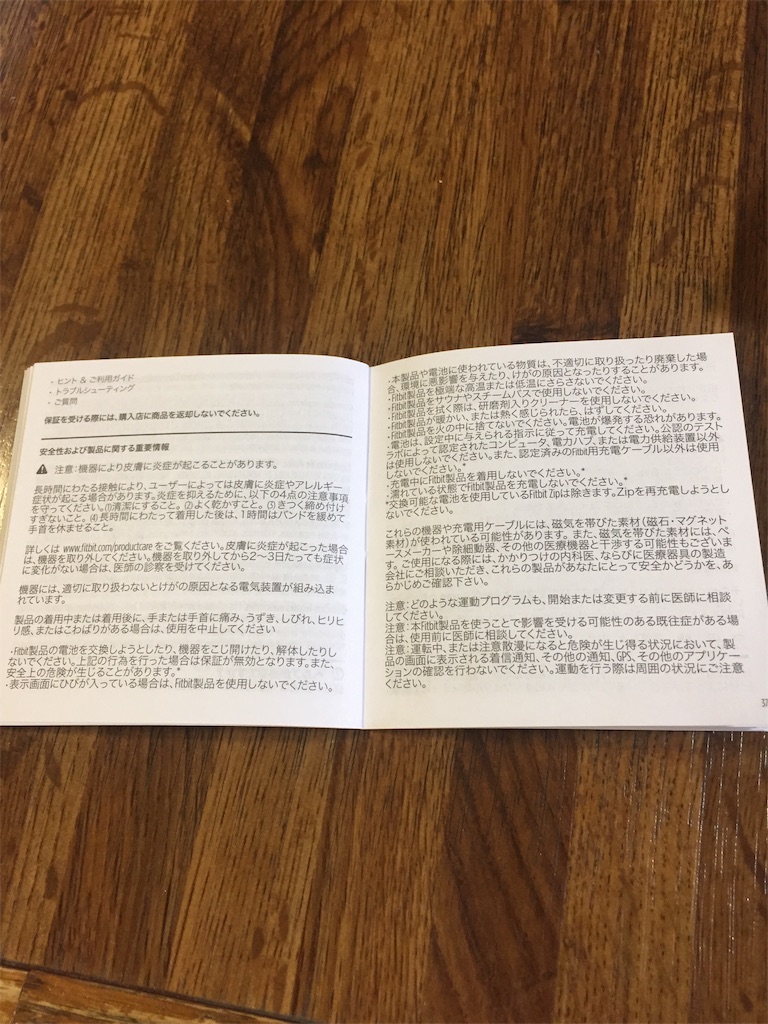 ・ヒント & ご利用ガイド
・トラブルシューティング
・ご質問
保証を受ける際には、購入店に商品を返却しないでください。
安全性および製品に関する重要情報
注意：機器により皮膚に炎症が起こることがあります。
長時間にわたる接触により、ユーザーによっては皮膚に炎症やアレルギー
症状が起こる場合があります。炎症を抑えるために、以下の4点の注意事項
を守ってください。(1)清潔にすること。 (2)よく乾かすこと。 (3)きつく締め付け
すぎないこと。 (4)長時間にわたって着用した後は、1時間はバンドを緩めて
手首を休ませること。
詳しくは www.fitbit.com/productcare をご覧ください。皮膚に炎症が起こった場合
は、機器を取り外してください。機器を取り外してから2〜3日たっても症状
に変化がない場合は、医師の診察を受けてください。
機器には、適切に取り扱わないとけがの原因となる電気装置が組み込ま
れています。
製品の着用中または着用後に、手または手首に痛み、うずき、しびれ、ヒリヒ
リ感、またはこわばりがある場合は、使用を中止してください
・Fitbit製品の電池を交換しようとしたり、機器をこじ開けたり、解体したりし
ないでください。上記の行為を行った場合は保証が無効となります。また、
安全上の危険が生じることがあります。*
・表示画面にひびが入っている場合は、Fitbit製品を使用しないでください。
・本製品や電池に使われている物質は、不適切に取り扱ったり廃棄した場
合、環境に悪影響を与えたり、けがの原因となったりすることがあります。
・Fitbit製品を極端な高温または低温にさらさないでください。
・Fitbit製品をサウナやスチームバスで使用しないでください。
・Fitbit製品を拭く際は、研磨剤入りクリーナーを使用しないでください。
・Fitbit製品が暖かい、または熱く感じられたら、はずしてください。
・Fitbit製品を火の中に捨てないでください。電池が爆発する恐れがあります。
・電池は、設定中に与えられる指示に従って充電してください。公認のテスト
ラボによって認定されたコンピュータ、電力ハブ、または電力供給装置以外
は使用しないでください。また、認定済みのFitbit用充電ケーブル以外は使用
しないでください。*
・充電中にFitbit製品を着用しないでください。*
・濡れている状態でFitbit製品を充電しないでください。*
*交換可能な電池を使用しているFitbit Zipは除きます。Zipを再充電しようとし
ないでください。
これらの機器や充電用ケーブルには、磁気を帯びた素材（磁石・マグネット
素材）が使われている可能性があります。また、磁気を帯びた素材には、ペ
ースメーカーや除細動器、その他の医療機器と干渉する可能性もございま
す。ご使用になる際には、かかりつけの内科医、ならびに医療器具の製造
会社にご相談いただき、これらの製品があなたにとって安全かどうかを、あ
らかじめご確認下さい。
注意：どのような運動プログラムも、開始または変更する前に医師に相談
してください。
注意：本Fitbit製品を使うことで影響を受ける可能性のある既往症がある場
合は、使用前に医師に相談してください。
注意：運転中、または注意散漫になると危険が生じ得る状況において、製
品の画面に表示される着信通知、その他の通知、GPS、その他のアプリケー
ションの確認を行わないでください。運動を行う際は周囲の状況にご注意
ください。